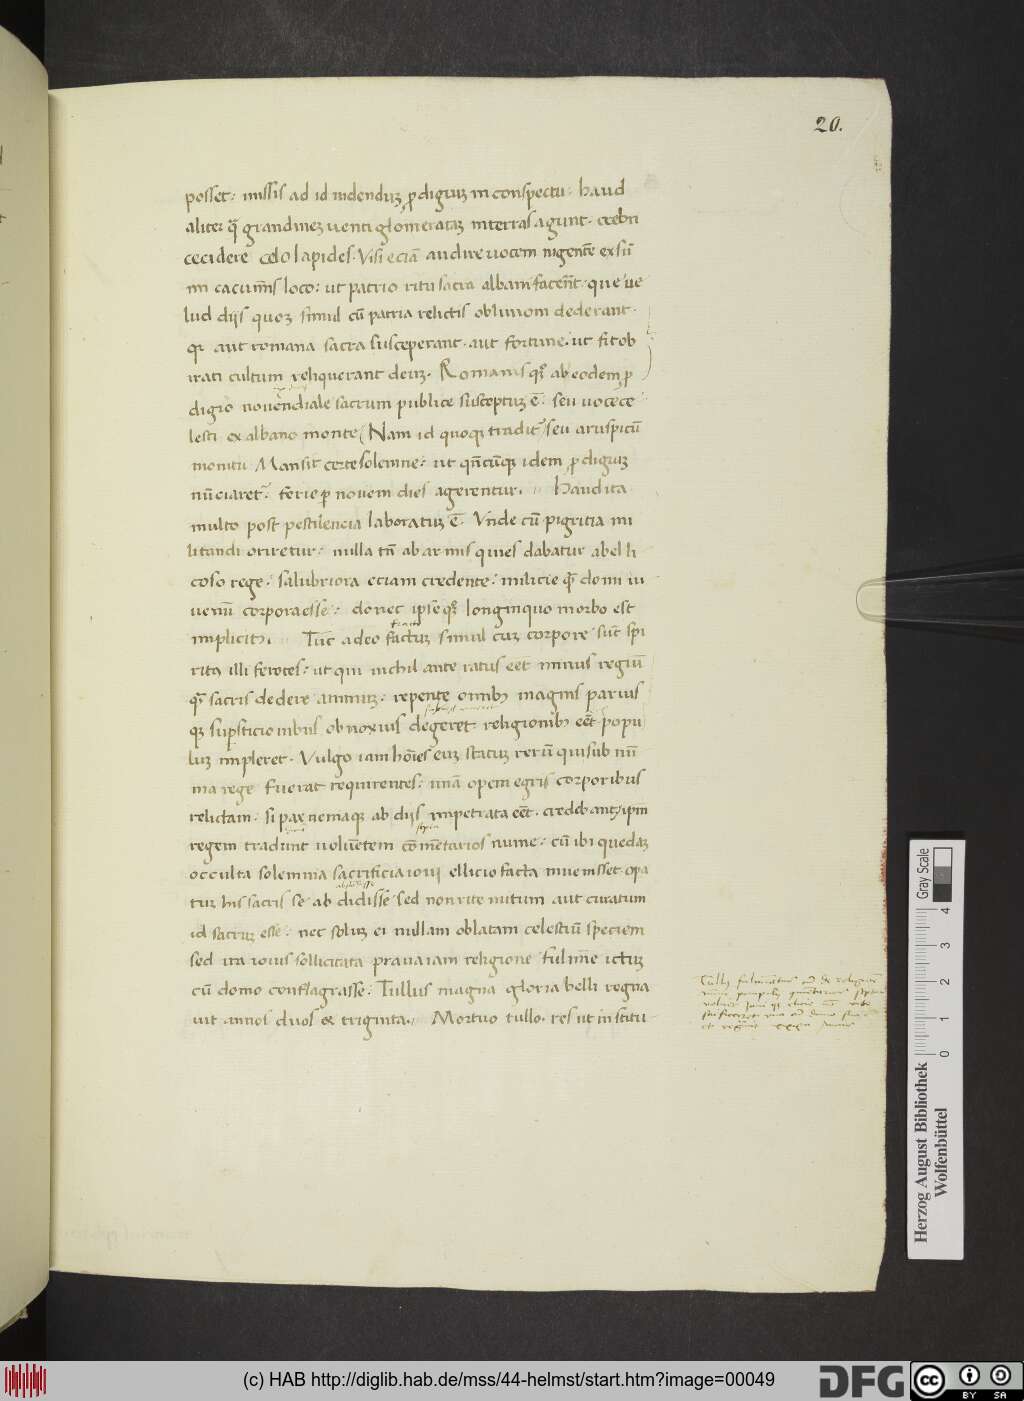 20.
posset: missis ad id uidenduꝫ ꝓdigiuꝫ in conspectu· haud
aliter q̃ȝ grandineꝫ uenti glomerataꝫ in terras agunt· crebri
cecidere celo lapides· Visi eciã audire uocem ingentẽ ex sũ
mi cacumĩs loco: ut patrio ritu sacra albani facerẽt· que ue
lud dijs quoꝫ simul cũ patria relictis obliuioni dederant·
aut romana sacra susceperant· aut fortune· ut fit ob
irati cultum reliquerant deuꝫ· Romanis qꝫ ab eodem ꝓ
digio nouendiale sacrum publice susceptuꝫ ẽ· seu uoce ce
lesti ex albano monte (Nam id quoqꝫ tradit᷑) seu aruspicũ
monitu Mansit certe solemne: ut qñcũqꝫ idem ꝓdigiuꝫ
nũciaret᷑ ferie ꝑ nouem dies agerentur· Haud ita
multo post pestilencia laboratuꝫ ẽ· Vnde cũ pigritia mi
litandi oriretur: nulla tñ ab armis quies dabatur a belli
coso rege: salubriora eciam credente: milicie q̃ȝ domi iu
uenũ corpora esse: donec ipse qꝫ longinquo morbo est
implicitꝰ· Tũc adeo factuꝫ simul cuꝫ corpore sũt spi
ritꝰ illi feroces: ut qui nichil ante ratus eẽt minus regiũ
q̃ȝ sacris dedere animuꝫ: repente omibꝫ magnis paruis
qꝫ suꝑsticionibus obnoxius degeret· religionibꝫ eẽt popu
luꝫ impleret· Vulgo iam hoĩes euꝫ statuꝫ rerũ qui sub nũ
ma rege fuerat requirentes: unã opem egris corporibus
relictam: si pax ueniaqꝫ ab dijs impetrata eẽt· credebant· ipm
regem tradunt uoluẽtem cõmẽtarios nume: cũ ibi quedaꝫ
occulta solemnia sacrificia ioui ellicio facta inuenisset· opa
tuꝫ his sacris se ab didisse sed non rite initum aut curatum
id sacruꝫ esse: nec soluꝫ ei nullam oblatam celestiũ speciem
sed ira iouis sollicitata praua iam religione fulmĩe ictuꝫ
cũ domo conflagrasse: Tullus magna gloria belli regna
uit annos duos & triginta· Mortuo tullo· res ut institu
(c) HAB http://diglib.hab.de/mss/44-helmst/start.htm?image=00049
Herzog August Bibliothek
Wolfenbüttel
Gray Scale
0 1 2 3 4
DFG
cc BY SA